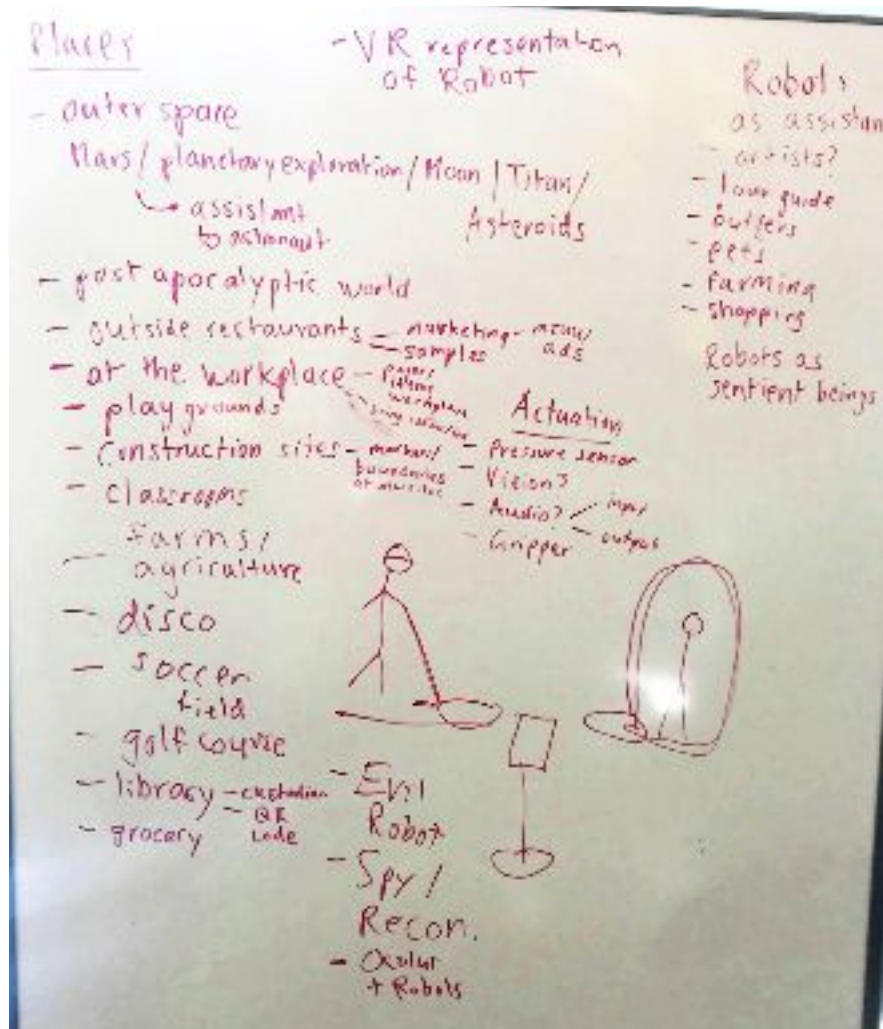 Places
- outer space
Mars / planetary exploration / Moon / Titan /
Asteroids
assistant
to astronaut
- post apocalyptic world
- outside restaurants - marketing - menu/
ads
- samples
- at the workplace -
workplace
- playgrounds
- Construction sites - markers/
boundaries
- Classrooms
- farms /
agriculture
- disco
- soccer
field
- golf course
- library - custodian
- QR
code
- grocery
- VR representation
of Robot
Actuation
- Pressure sensor
- Vision?
- Audio? input
output
- Gripper
- Evil
Robot
- Spy /
Recon.
- Oculus
+ Robots
Robots
as assistan
- artists?
- tour guide
- butlers
- pets
- farming
- shopping
Robots as
sentient beings